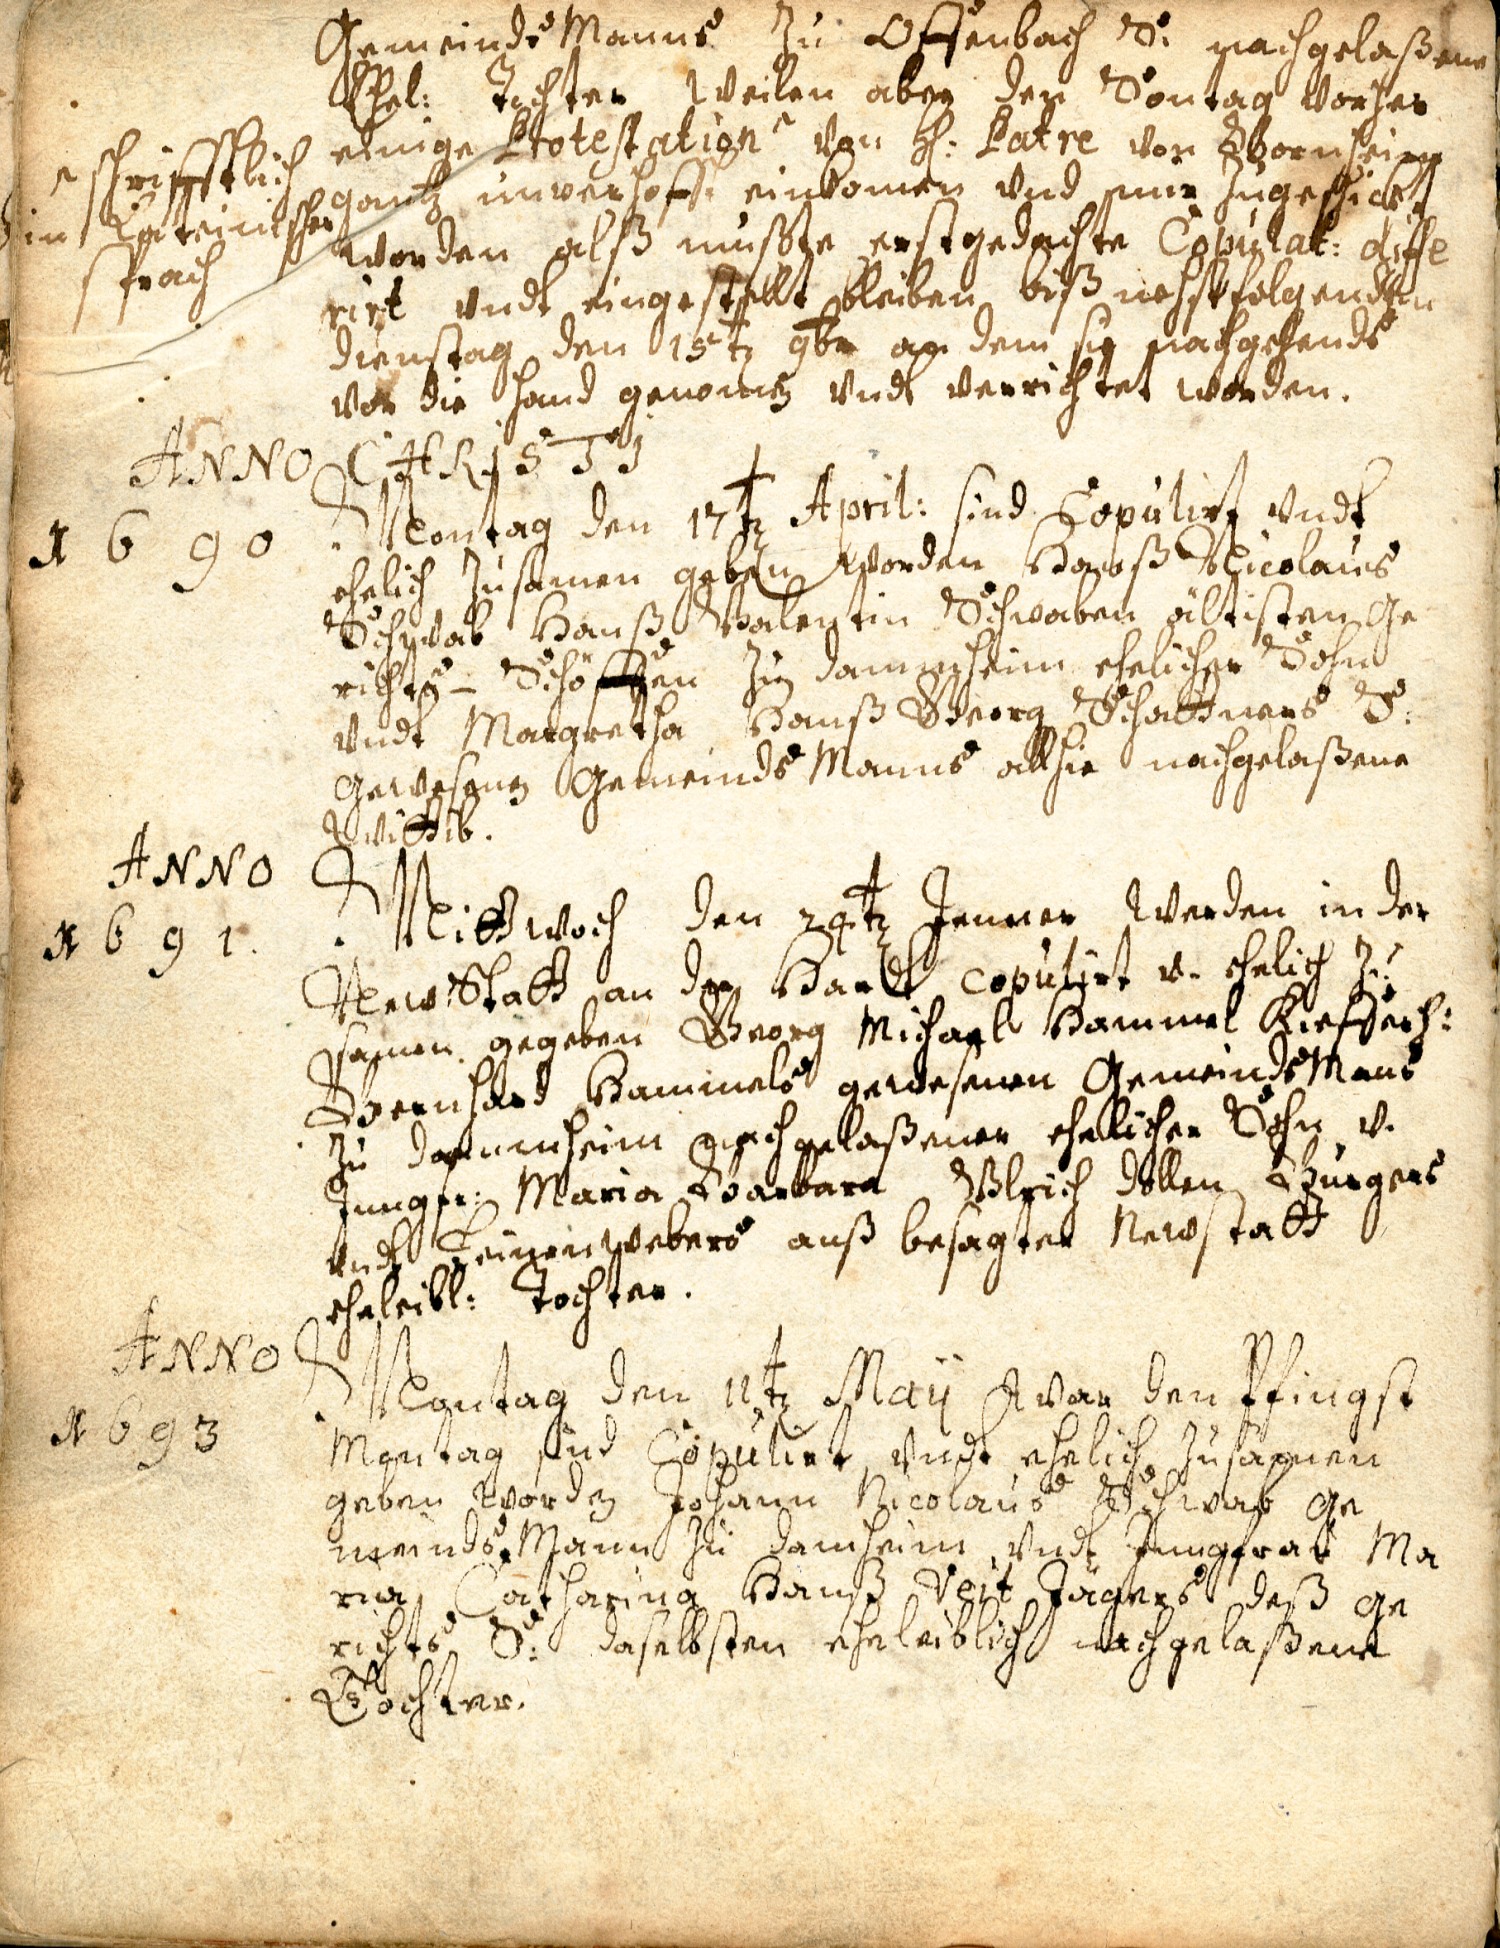 Gemeinds Manns zu Offenbach S: nachgelaßene
Ehel: Tochter weilen aber den Sontag vorher
einige Protestation ⌃ von H: Patre von Bornheim
⌃ schrifftlich
in Lateinischer
sprach
gantz unverhoff: einkomen vnd mir zugeschickt
worden alß mußte erstgedachte Copulat: diffe
rirt vndt eingestellt bleiben biß nehstfolgenden
dienstag den 15t 9br an dem sie nachgehends
vor die hand genomen vndt verrichtet worden.
ANNO CHRISTI
1690
Montag den 17t April: sind Copulirt vndt
ehelich zusamen geben worden Hanß Nicolaus
Schwab Hanß Valentin Schwaben ältisten Ge
richts-Schöffen zu dammheim ehelicher Sohn
vndt Margretha Hanß Georg Schattners S:
gewesenen Gemeinds Manns allhie nachgelaßene
Wittib.
ANNO
1691.
Mittwoch den 24t Jenner werden in der
New Statt an der Hardt copulirt v. ehelich zu
samen gegeben Georg Michael Hammel Kieffer H:
Bernhard Hammels gewesenen Gemeinds Mans
zu dammheim nachgelaßener ehelicher Sohn v.
Jungfr: Maria Barbara Vlrich dollen Burgers
vndt Leinenwebers auß besagter Newstatt
eheleibl: Tochter.
ANNO
1693
Montag den 11t Maij war den Pfingst
Montag sind Copulirt vndt ehelich zusamen
geben worden Johann Nicolaus Schwab Ge
meinds Mann zu damheim vndt Jungfrau Ma
ria Catharina Hanß Veit Jägers deß Ge
richts S: daselbsten eheleiblich nachgelaßene
Tochter.